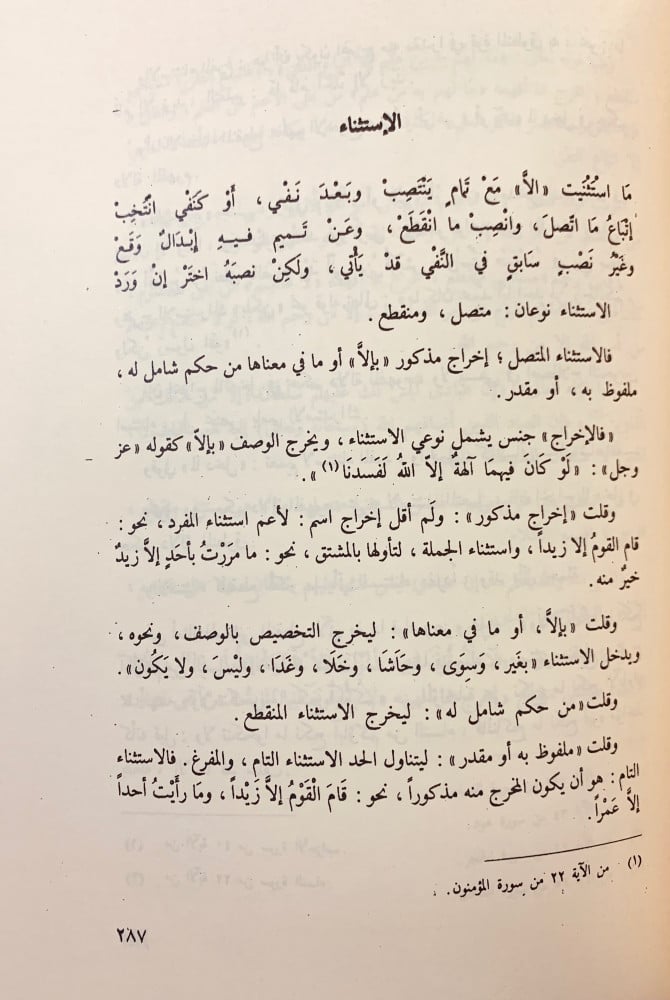 الإستثناء
مَا اسْتُثْنِيَت «الاَّ» مَعْ تَمَامٍ يَنْتَصِبْ وبَعْدَ نَفْيٍ، أَوْ كَنَفْيٍ انْتُخِبْ
إِتْبَاعُ مَا اتَّصلَ، وانْصِبْ ما انْقَطَعْ، وعَنْ تَمِيمٍ فيهِ إِبْدَالٌ وَقَعْ
وغَيْرُ نَصْبِ سَابِقٍ في النَّفْي قدْ يَأْتي، ولَكِنْ نصبَهُ اخترْ إنْ وَرَدْ
الاستثناء نوعان: متصل، ومنقطع.
فالاستثناء المتصل؛ إخراج مذكور «بإلاَّ» أو ما في معناها من حكم شامل له،
ملفوظ به، أو مقدر.
«فالإخراج» جنس يشمل نوعي الاستثناء، ويخرج الوصف «بإلاّ» كقوله «عز
وجل»: «لَوْ كَانَ فيهمَا آلهةٌ إلاّ اللهُ لَفَسَدتَا (١)».
وقلت «إخراج مذكور»: ولَم أقل إخراج اسم: لأعم استثناء المفرد، نحو:
قام القومُ إلا زيداً، واستثناء الجملة، لتأولها بالمشتق، نحو: ما مَرَرْتُ بأحَدٍ إلاَّ زيدٌ
خيرٌ منه.
وقلت «بإلاَّ، أو ما في معناها»: ليخرج التخصيص بالوصف، ونحوه،
ويدخل الاستثناء «بغَير، وَسِوَى، وحَاشَا، وخَلَا، وغَدَا، وليْسَ، ولا يَكُون».
وقلت «من حكم شامل له»: ليخرج الاستثناء المنقطع.
وقلت «ملفوظ به أو مقدر»: ليتناول الحد الاستثناء التام، والمفرغ. فالاستثناء
التام: هو أن يكون المخرج منه مذكوراً، نحو: قَامَ الْقَوْمُ إلاَّ زَيْداً، ومَا رأَيْتُ أحداً
إلاَّ عَمْراً.
(١) من الآية ٢٢ من سورة المؤمنون.
٢٨٧